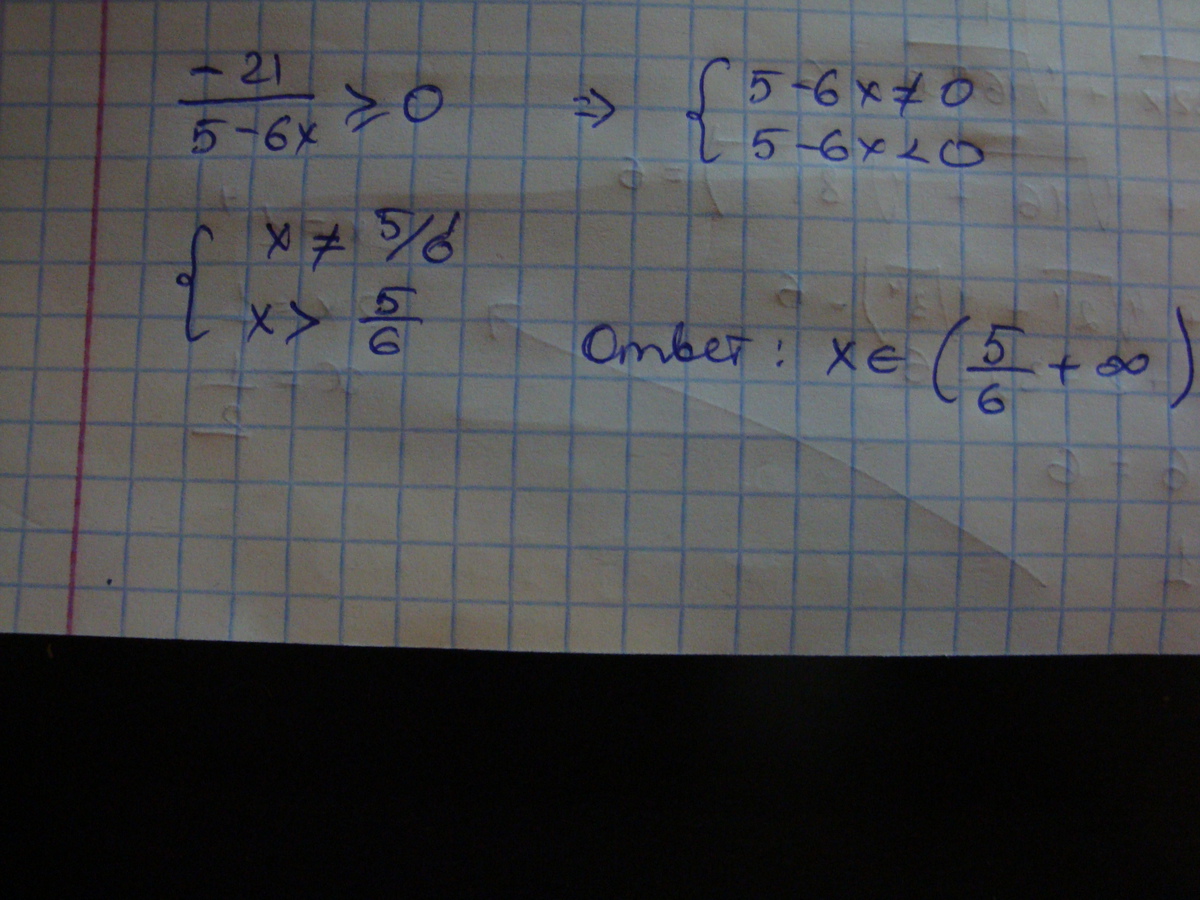 -21/(5-6x) ≥ 0 ⇒ { 5-6x≠0
5-6x<0
{ x ≠ 5/6
x > 5/6
Ответ: x∈(5/6 +∞)